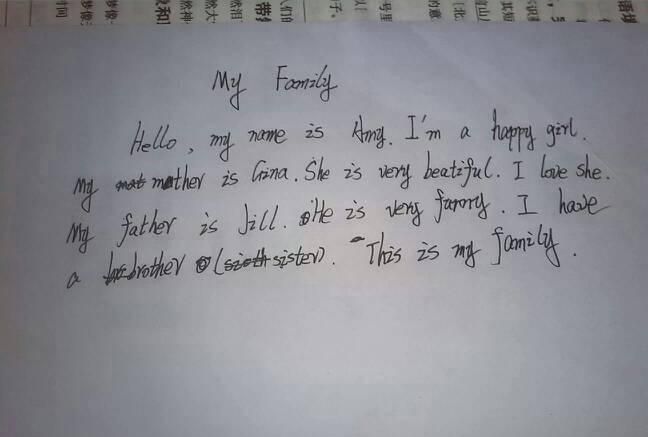 My Family
Hello, my name is Amy. I'm a happy girl.
My mother is Gina. She is very beatiful. I love she.
My father is Jill. He is very funny. I have
a brother (sister). This is my family.